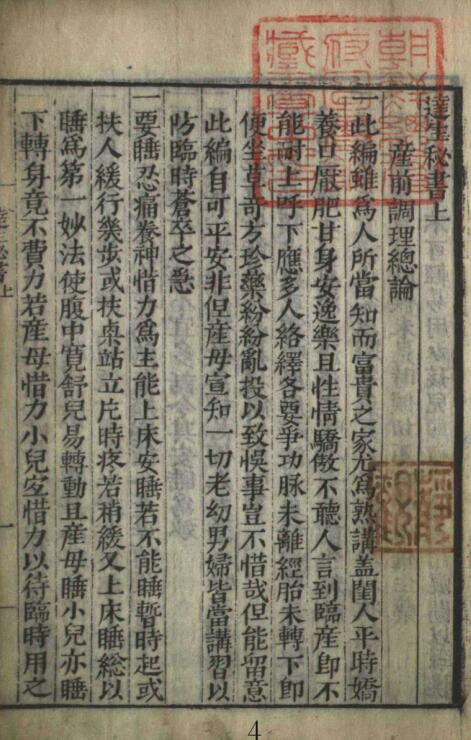 達生秘書上
產前調理總論
此編雖爲人所當知而富貴之家尤爲熟講盖閨人平時嬌
養口厭肥甘身安逸樂且性情驕傲不聽人言到臨産卽不
能耐上呼下應多人絡繹各要爭功脉未離經胎未轉下卽
便坐草奇方珍藥紛紛亂投以致悞事豈不惜哉但能留意
此編自可平安非但産母宜知一切老幼男婦皆當講習以
防臨時蒼卒之患
一要睡忍痛養神惜力爲主能上床安睡若不能睡暫時起或
扶人緩行幾步或扶桌站立片時疼若稍緩又上床睡総以
睡爲第一妙法使腹中寬舒兒易轉動且産母睡小兒亦睡
下轉身竟不費力若産母惜力小兒宜惜力以待臨時用之
4